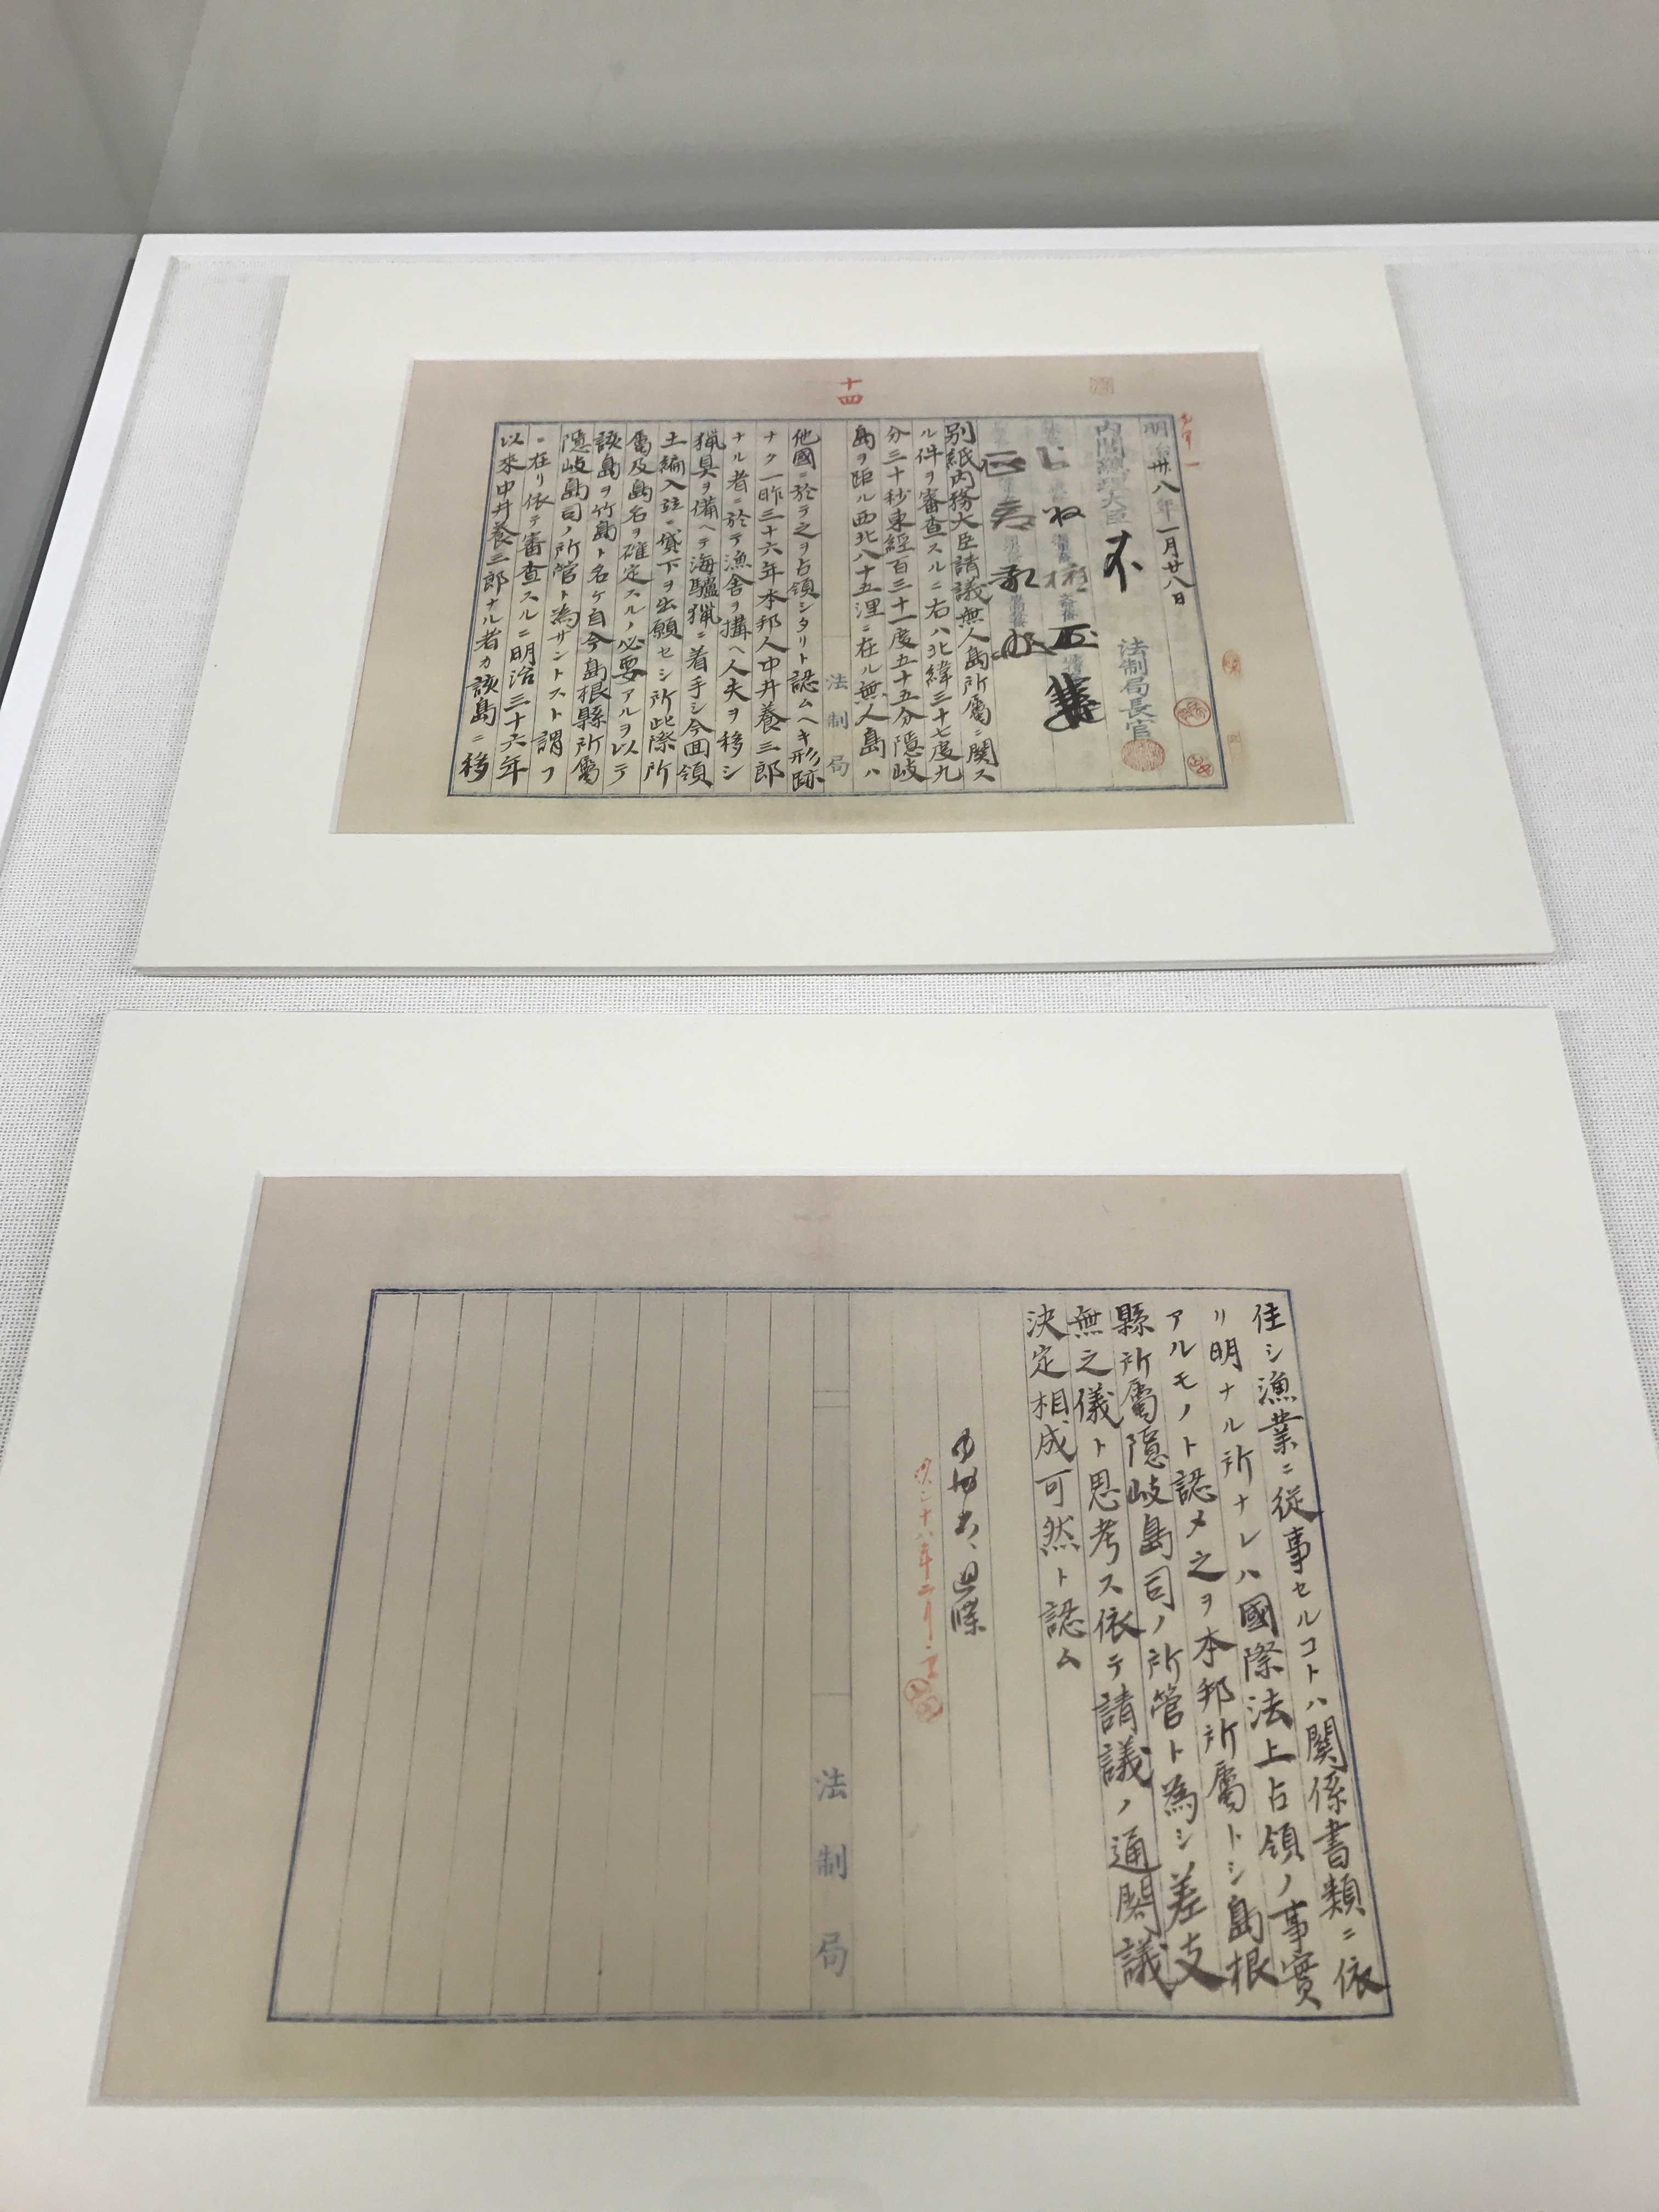 十四
明治卅八年一月廿八日
内閣總理大臣
法制局長官
別紙内務大臣請議無人島所屬ニ関ス
ル件ヲ審査スルニ右ハ北緯三十七度九
分三十秒東經百三十一度五十五分隱岐
島ヲ距ル西北八十五浬ニ在ル無人島ハ
法制局
他國ニ於テ之ヲ占領シタリト認ムヘキ形跡
ナク一昨三十六年本邦人中井養三郎
ナル者ニ於テ漁舎ヲ搆ヘ人夫ヲ移シ
猟具ヲ備ヘテ海驢猟ニ着手シ今回領
土編入竝ニ貸下ヲ出願セシ所此際所
屬及島名ヲ確定スルノ必要アルヲ以テ
該島ヲ竹島ト名ケ自今島根縣所屬
隱岐島司ノ所管ト為サントスト謂フ
ニ在リ依テ審査スルニ明治三十六年
以来中井養三郎ナル者カ該島ニ移
住シ漁業ニ從事セルコトハ関係書類ニ依
リ明ナル所ナレハ國際法上占領ノ事實
アルモノト認メ之ヲ本邦所屬トシ島根
縣所屬隱岐島司ノ所管ト為シ差支
無之儀ト思考ス依テ請議ノ通閣議
決定相成可然ト認ム
法制局